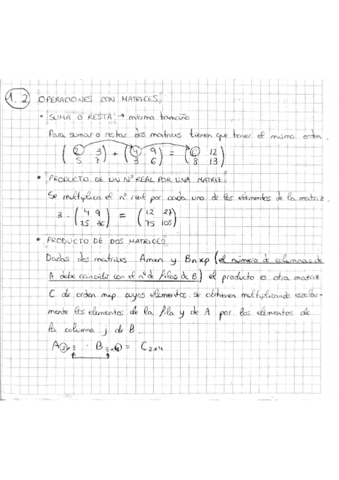 1.2 OPERACIONES CON MATRICES:
• SUMA O RESTA → mismo tamaño
Para sumar o restar dos matrices tienen que tener el mismo orden.
( 2 3 ) + ( 4 9 ) = ( 6 12 )
( 5 7 ) ( 3 6 ) ( 8 13 )
• PRODUCTO DE UN Nº REAL POR UNA MATRIZ:
Se multiplica el nº real por cada uno de los elementos de la matriz.
3 · ( 4 9 ) = ( 12 27 )
( 25 36 ) ( 75 108 )
• PRODUCTO DE DOS MATRICES:
Dadas dos matrices Amxn y Bnxp (el número de columnas de
A debe coincidir con el nº de filas de B) el producto es otra matriz
C de orden mxp cuyos elementos se obtienen multiplicando escalar-
mente los elementos de la fila y de A por los elementos de
la columna j de B.
A2x3 · B3x4 = C2x4